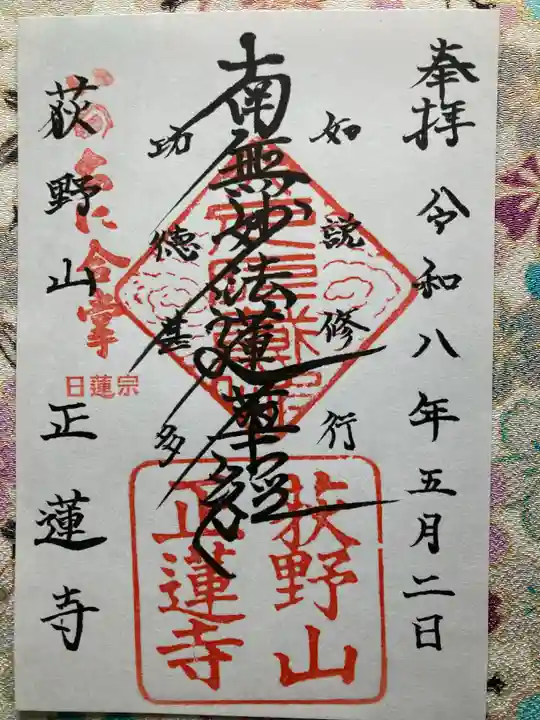 奉拝 令和八年五月二日
如説修行
南無妙法蓮華経
功徳甚多
荻野山正蓮寺
に合掌
日蓮宗
荻野山
正蓮寺